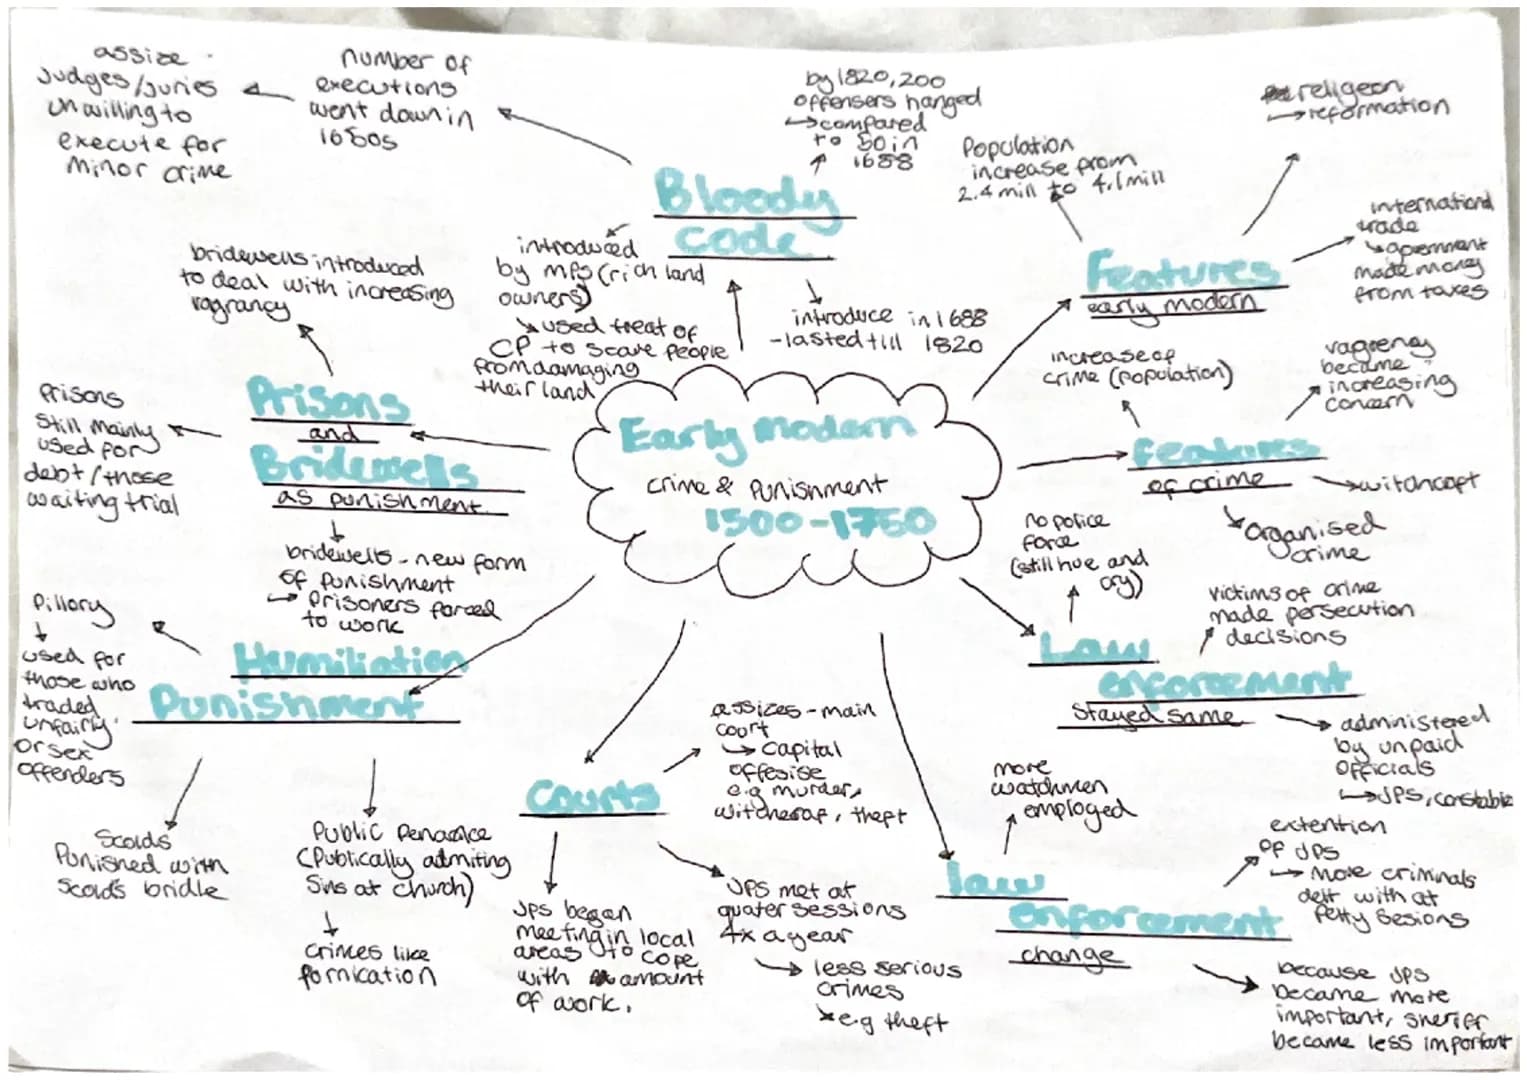 assize
judges/juries
unwilling to
execute for
minor crime
number of
executions
went down in
1680s
by 1820, 200
offensers hanged
→compared
to 50 in
1688
Bloody
code
introduced
by mps (rich land
owners)
used treat of
CP to scare people
from damaging
their land
introduce in 1688
-lasted till 1820
Population
increase from
2.4 mill to 4.1 mill
religeon
→reformation
international
trade
government
made money
from taxes
Features
early modern
Early modern
crime & Punishment
1500-1750
bridewells introduced
to deal with increasing
vagrancy
Prisons
and
Bridewells
as punishment
prisons
still mainly
used for
debt/those
waiting trial
bridewells - new form
of punishment
→ prisoners forced
to work
increase of
crime (population)
vagrency
became
increasing
concern
features
of crime
witchcraft
Organised
crime
no police
force
(still hue and
cry)
victims of crime
made persecution
decisions
Law
enforcement
stayed same
administered
by unpaid
officials
→JPS, constable
Humiliation
Punishment
Pillory
used for
those who
traded
unfairly
or sex
offenders
Scolds
Punished with
scolds bridle
Public Penance
(Publically admiting
Sins at church)
crimes like
fornication
Courts
assizes - main
court
→ Capital
offense
e.g murder,
witchcraf, theft
JPS began
meeting in local
areas to cope
with amount
of work.
JPS met at
quater sessions
4x a year
less serious
crimes
e.g theft
law
enforcement
change
more
watchmen
employed
extention
of JPS
→ more criminals
delt with at
Petty Sesions
because JPS
became more
important, sheriff
became less important